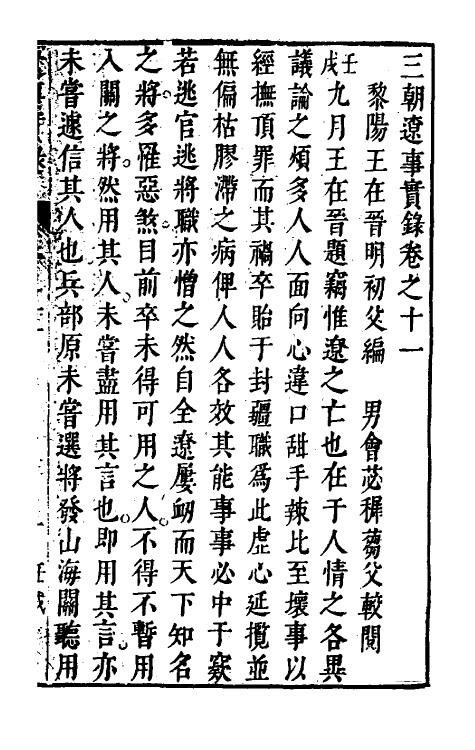 三朝遼事實錄卷之十一
黎陽王在晉明初父編　男會苾穉蒭父較閱
壬戌九月王在晉題竊惟遼之亡也在于人情之各異
議論之煩多人人面向心違口甜手辣比至壞事以
經撫頂罪而其禍卒貽于封疆職爲此虛心延攬並
無偏枯膠滯之病俾人人各效其能事事必中于窾
若逃官逃將職亦憎之然自全遼屢衂而天下知名
之將多罹惡煞目前卒未得可用之人不得不暫用
入關之將然用其人未嘗盡用其言也卽用其言亦
未嘗遽信其人也兵部原未嘗選將發山海關聽用